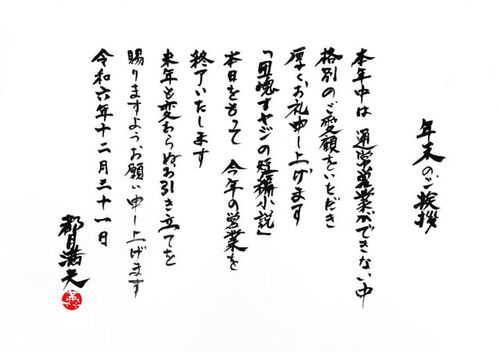 年末のご挨拶
本年中は 通常営業ができない中
格別のご愛顧をいただき
厚くお礼申し上げます
「団塊オヤジの短編小説」
本日をもって 今年の営業を
終了いたします
来年も変わらぬお引き立てを
賜りますようお願い申し上げます
令和六年十二月三十一日
都月満夫